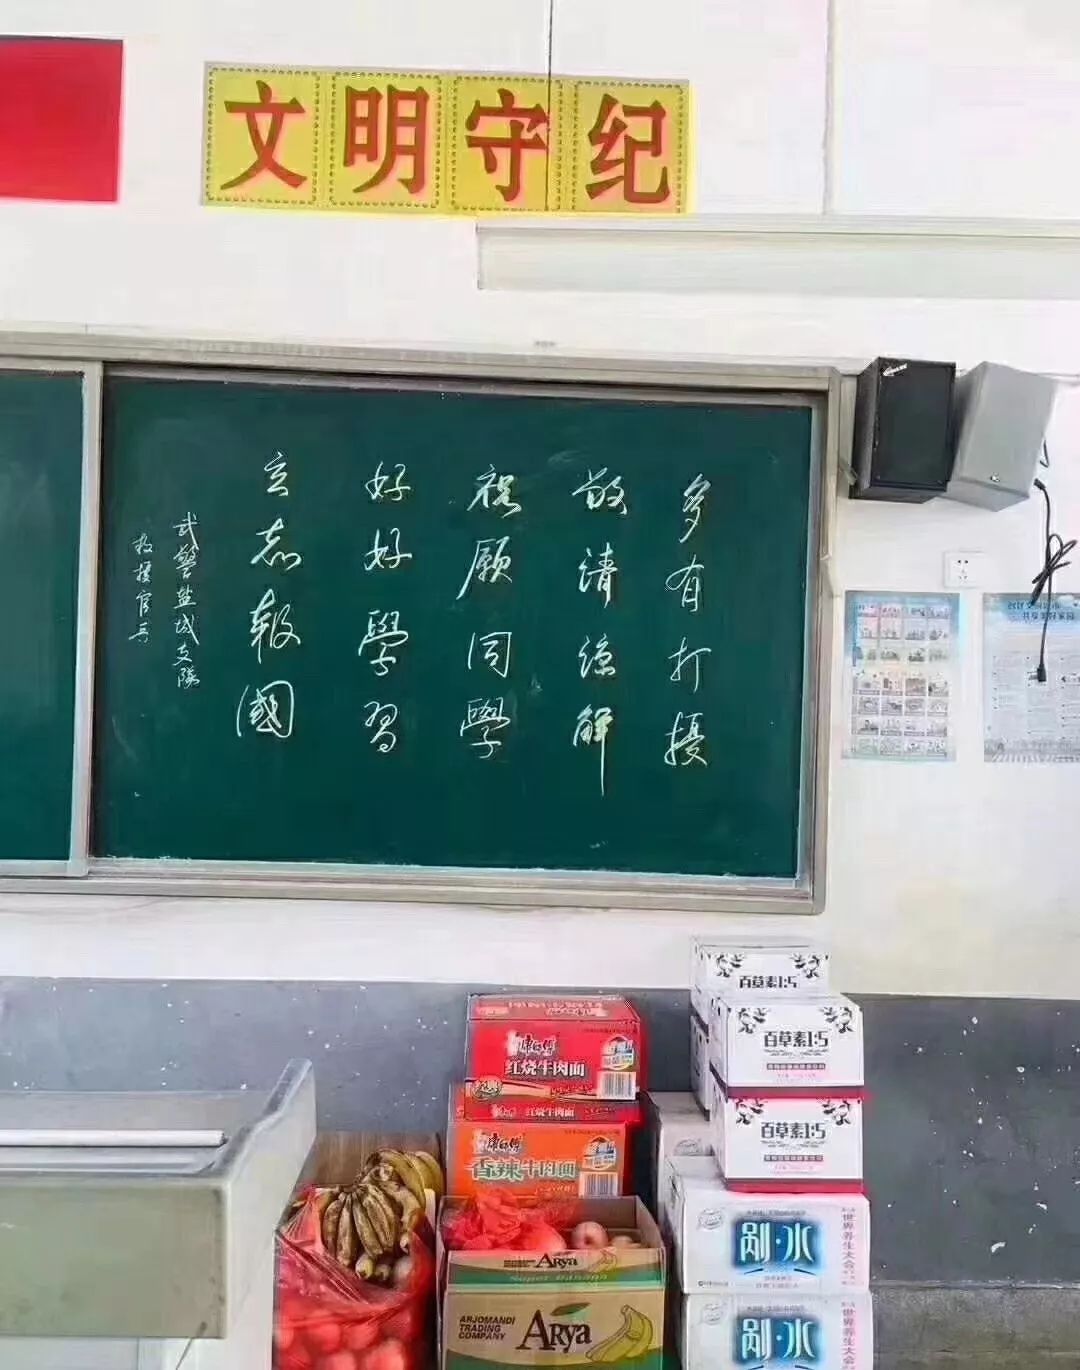 文明守纪
多有打擾
敬请谅解
祝愿同學
好好學習
立志報國
武警盐城支隊
救援官兵
百草素1:5
百草素1:5
百草素1:5
康师傅
红烧牛肉面
经典
红烧牛肉面
康师傅
香辣牛肉面
ARYA
Super Banana
ARJOMANDI
TRADING
COMPANY
ARYA
剐·水
世界养生大会
剐·水
世界养生大会